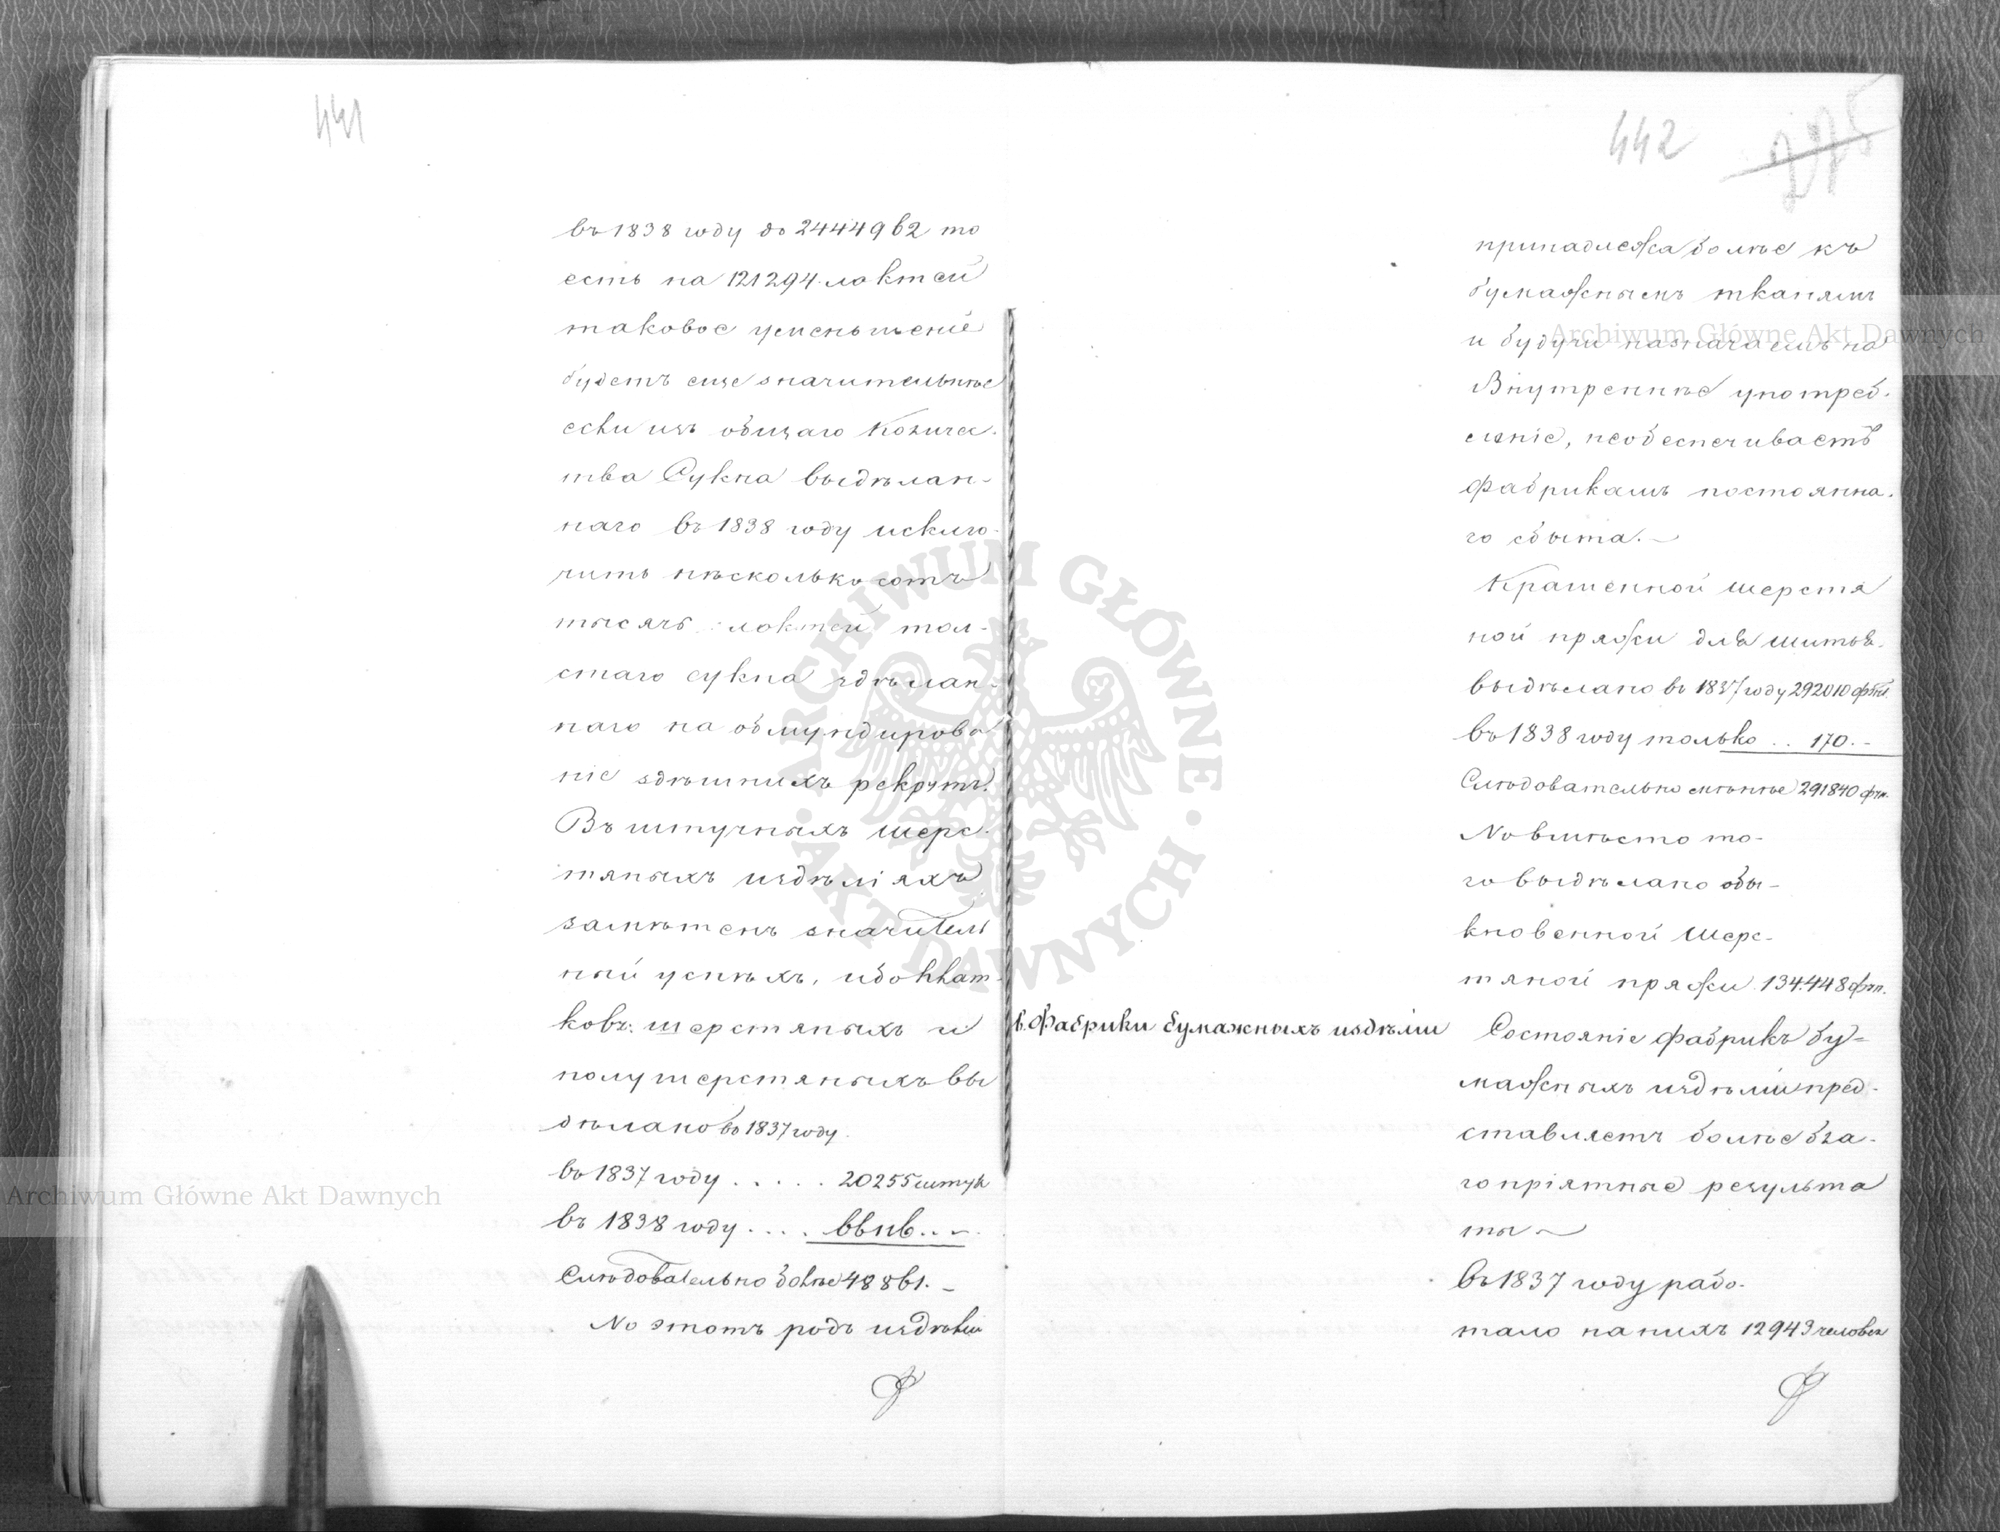 441
въ 1838 году до 2444962 то
есть на 121294 локтей
таковое уменьшеніе
будетъ еще значительнѣе
если изъ общаго Количес-
тва Сукна выдѣлан-
наго въ 1838 году исклю-
чить нѣсколько сотъ
тысячъ локтей тол-
стаго сукна здѣлан-
наго на обмундирова
ніе здѣшнихъ рекрутъ.
Въ штучныхъ шерс-
тяныхъ издѣліяхъ
замѣтенъ значитель
ный успѣхъ, ибо плат-
ковъ: шерстяныхъ и
полушерстяныхъ вы
дѣлано въ 1837 году.
въ 1837 году ..... 20255 штукъ
въ 1838 году .... 69116..~
Слѣдовательно болѣе 48861. -
Но этотъ родъ издѣлій
442 275
принадлежа болѣе къ
бумажнымъ тканямъ
и будучи назначаемъ на
Внутреннѣе употреб-
леніе, необеспечиваетъ
фабрикамъ постоянна-
го сбыта. ~
Крашенной шерстя
ной пряжи для шитья.
выдѣлано въ 1837 году 292010 фун.
въ 1838 году только .. 170. -
Слѣдовательно менѣе 291840 фун.
Но вмѣсто то-
го выдѣлано обы-
кновенной Шерс-
тяной пряжи 134.448 фун.
в. Фабрики бумажныхъ издѣлій
Состояніе фабрикъ бу-
мажныхъ издѣлій пред-
ставляетъ болѣе бла-
гопріятные результа
ты ~
Въ 1837 году рабо-
тало на нихъ 12943 человѣк
Archiwum Główne Akt Dawnych
ARCHIWUM GŁÓWNE AKT DAWNYCH
Archiwum Główne Akt Dawnych